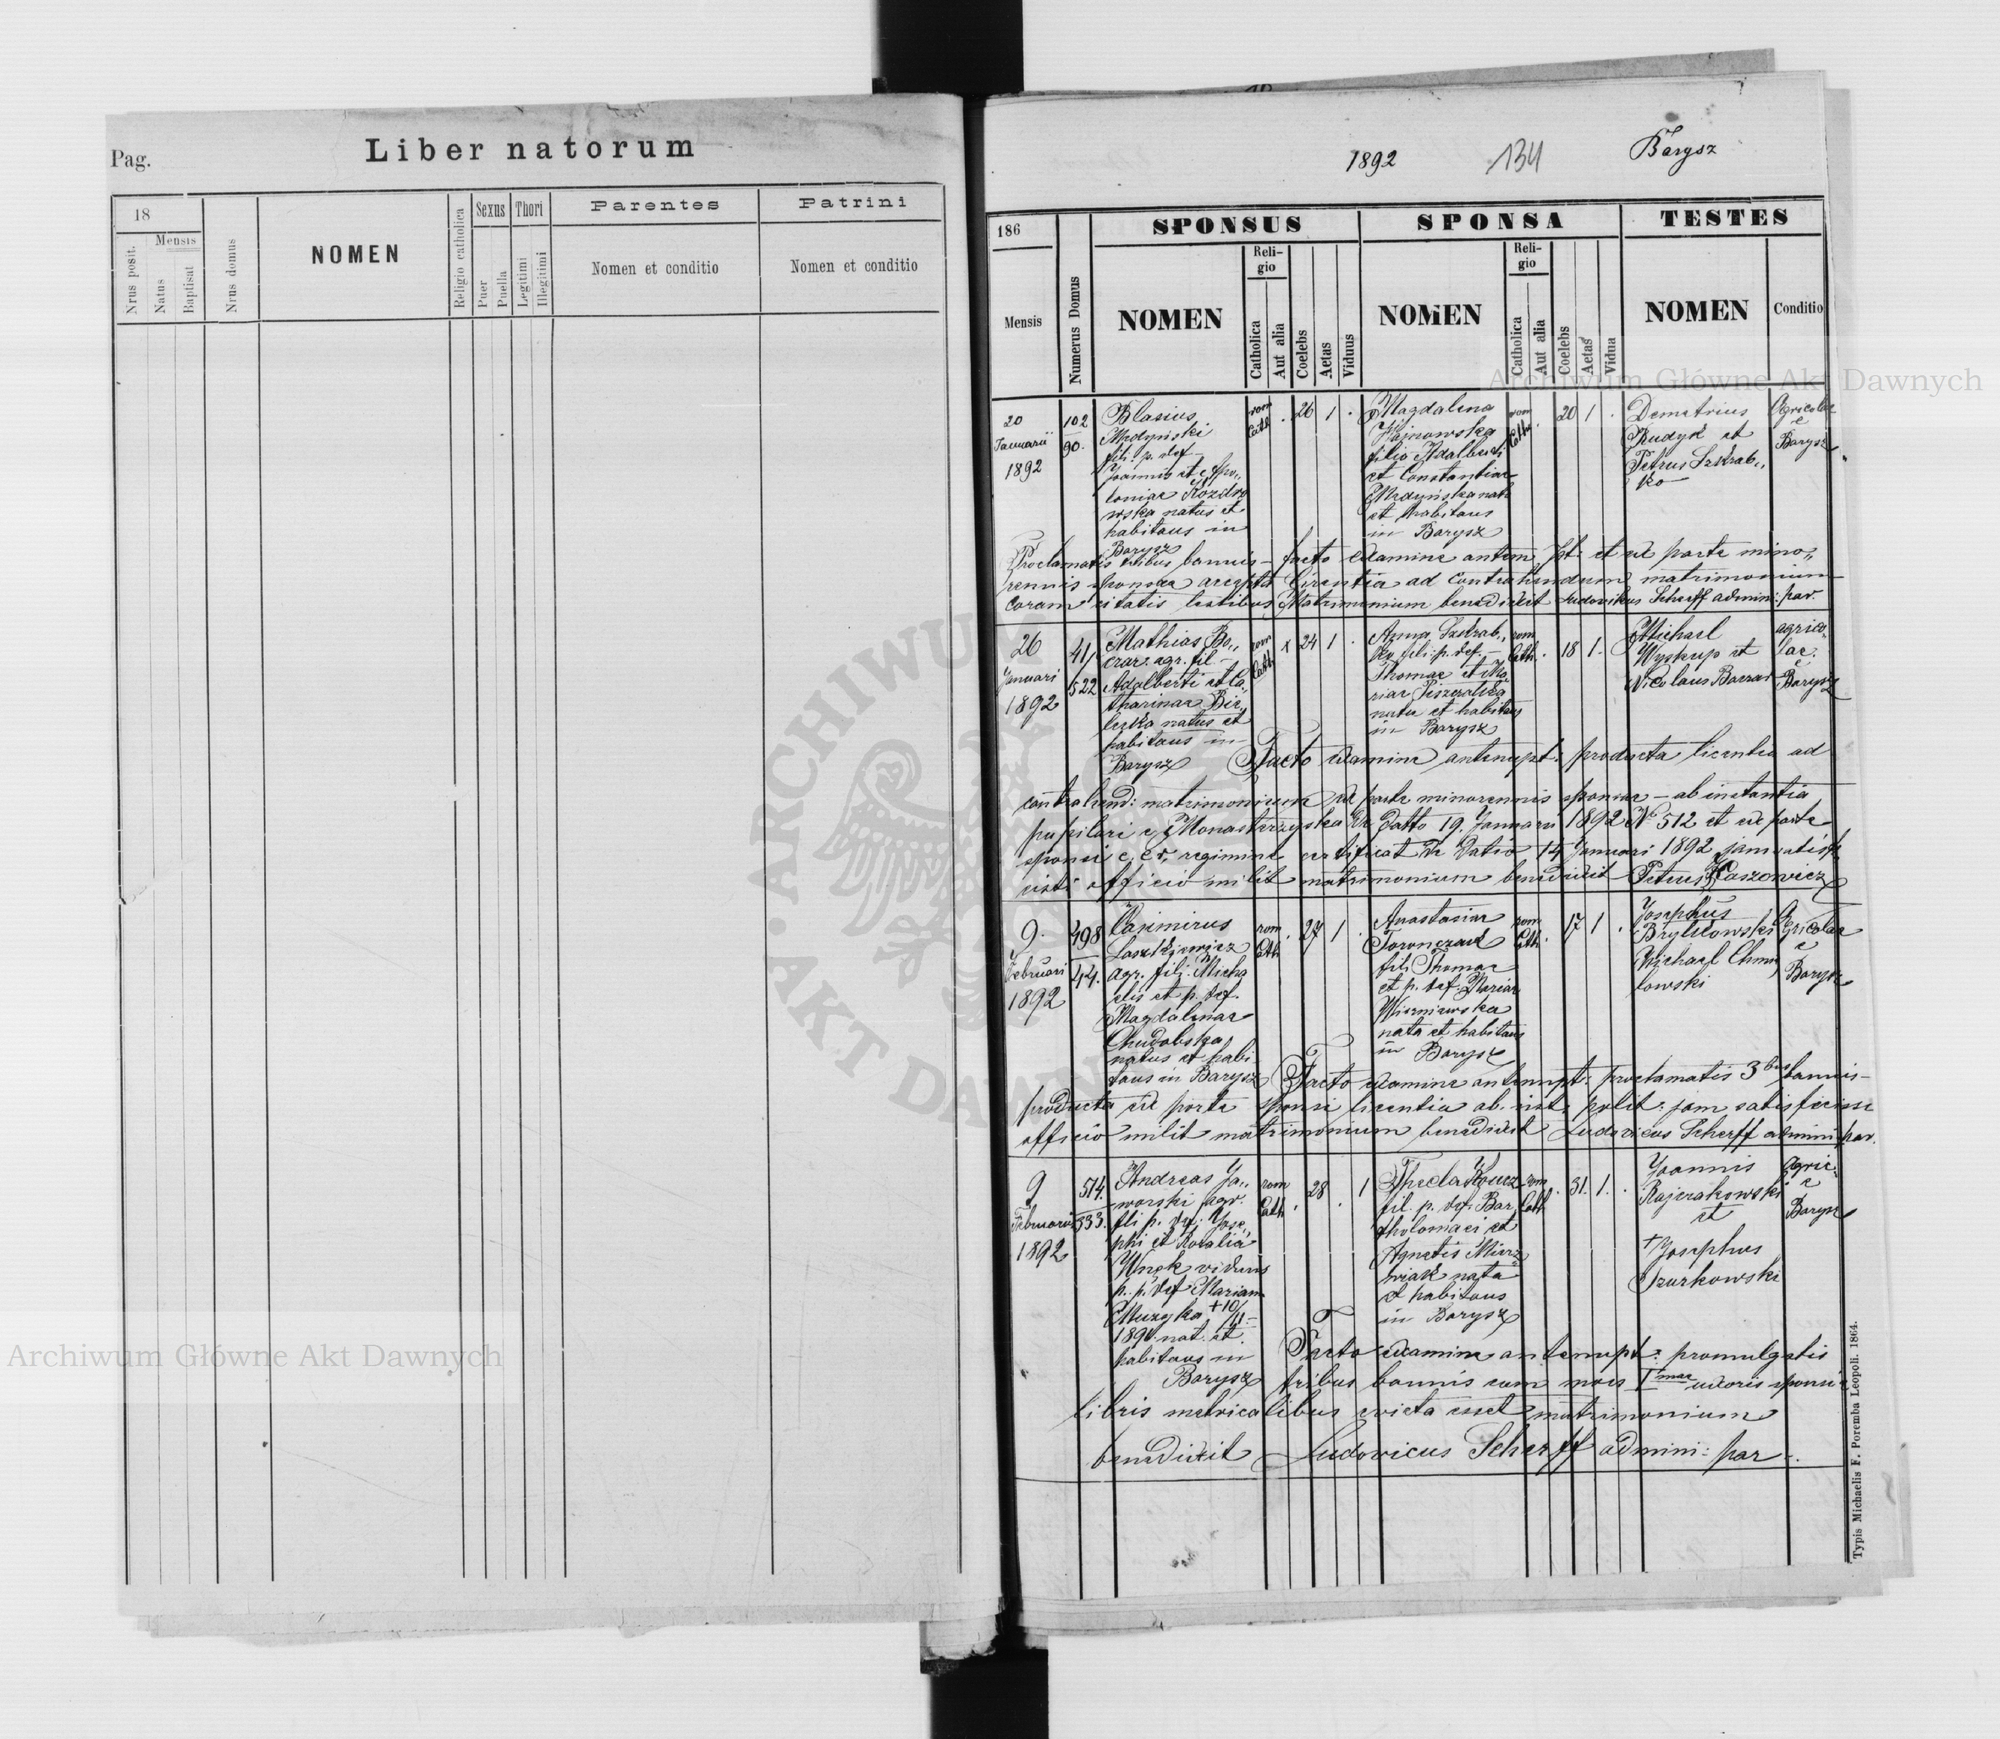 Pag.
Liber natorum
18
Mensis
Nrus posit.
Natus
Baptisat
Nrus domus
NOMEN
Religio catholica
Sexus
Puer
Puella
Thori
Legitimi
Illegitimi
Parentes
Nomen et conditio
Patrini
Nomen et conditio
1892
134
Barysz
186
Mensis
Numerus Domus
SPONSUS
NOMEN
Religio
Catholica
Aut alia
Coelebs
Aetas
Viduus
SPONSA
NOMEN
Religio
Catholica
Aut alia
Coelebs
Aetas
Vidua
TESTES
NOMEN
Conditio
20
Januarii
1892
102
90.
Blasius
Mrdzinski
fili. p. def
Joannis et Apo„
loniae Kozdro
wska natus et
habitans in
Barysz
rom
Cath
26 1
Magdalena
Hajnowska
filia Adalberti
et Constantiae
nata
et habitans
in Barysz
rom
Cath
20 1
Demetrius
Rudyk et
Petrus Szkrab„
ko
Agricolae
e
Barysz
Proclamatis tribus bannis – facto examine antenupt. et ex parte mino„
rennis sponsae accepta licentia ad contrahendum matrimonium
coram citatis testibus Matrimonium benedixit Ludovikus Scherff admini: par.
26
Januari
1892
41/
522
Mathias Bo„
czar. agr. fil –
Adalberti et Ca„
tharinae Bie„
lecka natus et
habitans in
Barysz
rom
Cath
x 24 1
Anna Szkrab„
ko fili. p. def. –
Thomae et Ma„
riae Piszczatka
nata et habitans
in Barysz
rom
Cath.
18 1.
Michael
Wyskup et
Nicolaus Boczar
agrico„
lae.
e
Barysz
Facto examine antenupt: producta licentia ad
contrahend: matrimonium ex parte minorennis sponsae – ab instantia
pupilari c Monasterzyska de datto 19. Januari 1892 No 512 et ex parte
sponsi c. r. regimine certificat de dato 14 Januari 1892 jam
officio milit matrimonium benedixit Petrus Kaszowicz
9.
Februari
1892
498
44.
Casimirus
Laszkiewicz
agr. fili. Micha
elis et p. def.
Magdalenae
Chudobska
natus et habi
tans in Barysz
rom
Cath
27 1
Anastasiae
Toronczak
fili Thomae
et p. def. Mariae
Wisniewska
nata et habitans
in Barysz
rom
Cath.
17 1
Josephus
Brylikowski
Michael Chmie
lowski
Agricolae
e
Barysz
Facto examine antenupt: proclamatis 3bus bannis –
producta ex parte sponsi licentia ab inst. polit: jam satisfecisse
officio milit matrimonium benedixit Ludovicus Scherff admini: par.
9
Februarii
1892
514.
333.
Andreas Ja„
worski agr.
fili p. def. Jose„
phi et Rosalia
Wnęk viduus
p. p. def Mariam
Muzyka +10/11 –
1891. nat. et
habitans in
Barysz
rom
Cath
28 1
Thecla Koucz
fil. p. def. Bar
tholomaei et
Agnetis Mierz
wiak nata
et habitans
in Barysz
rom
Cath
31. 1.
Joannis
Rajczakowski
et
+ Josephus
Szurkowski
Agric„
e
Barysz
Facto examine antenupt: promulgatis
tribus bannis cum mors Imae uxoris sponsi
libris metricalibus evicta esset matrimonium
benedixit Ludovicus Scherff admini: par –.
Typis Michaelis F. Poremba Leopoli. 1864.
Archiwum Główne Akt Dawnych
Archiwum Główne Akt Dawnych
ARCHIWUM
AKT DAWNYCH